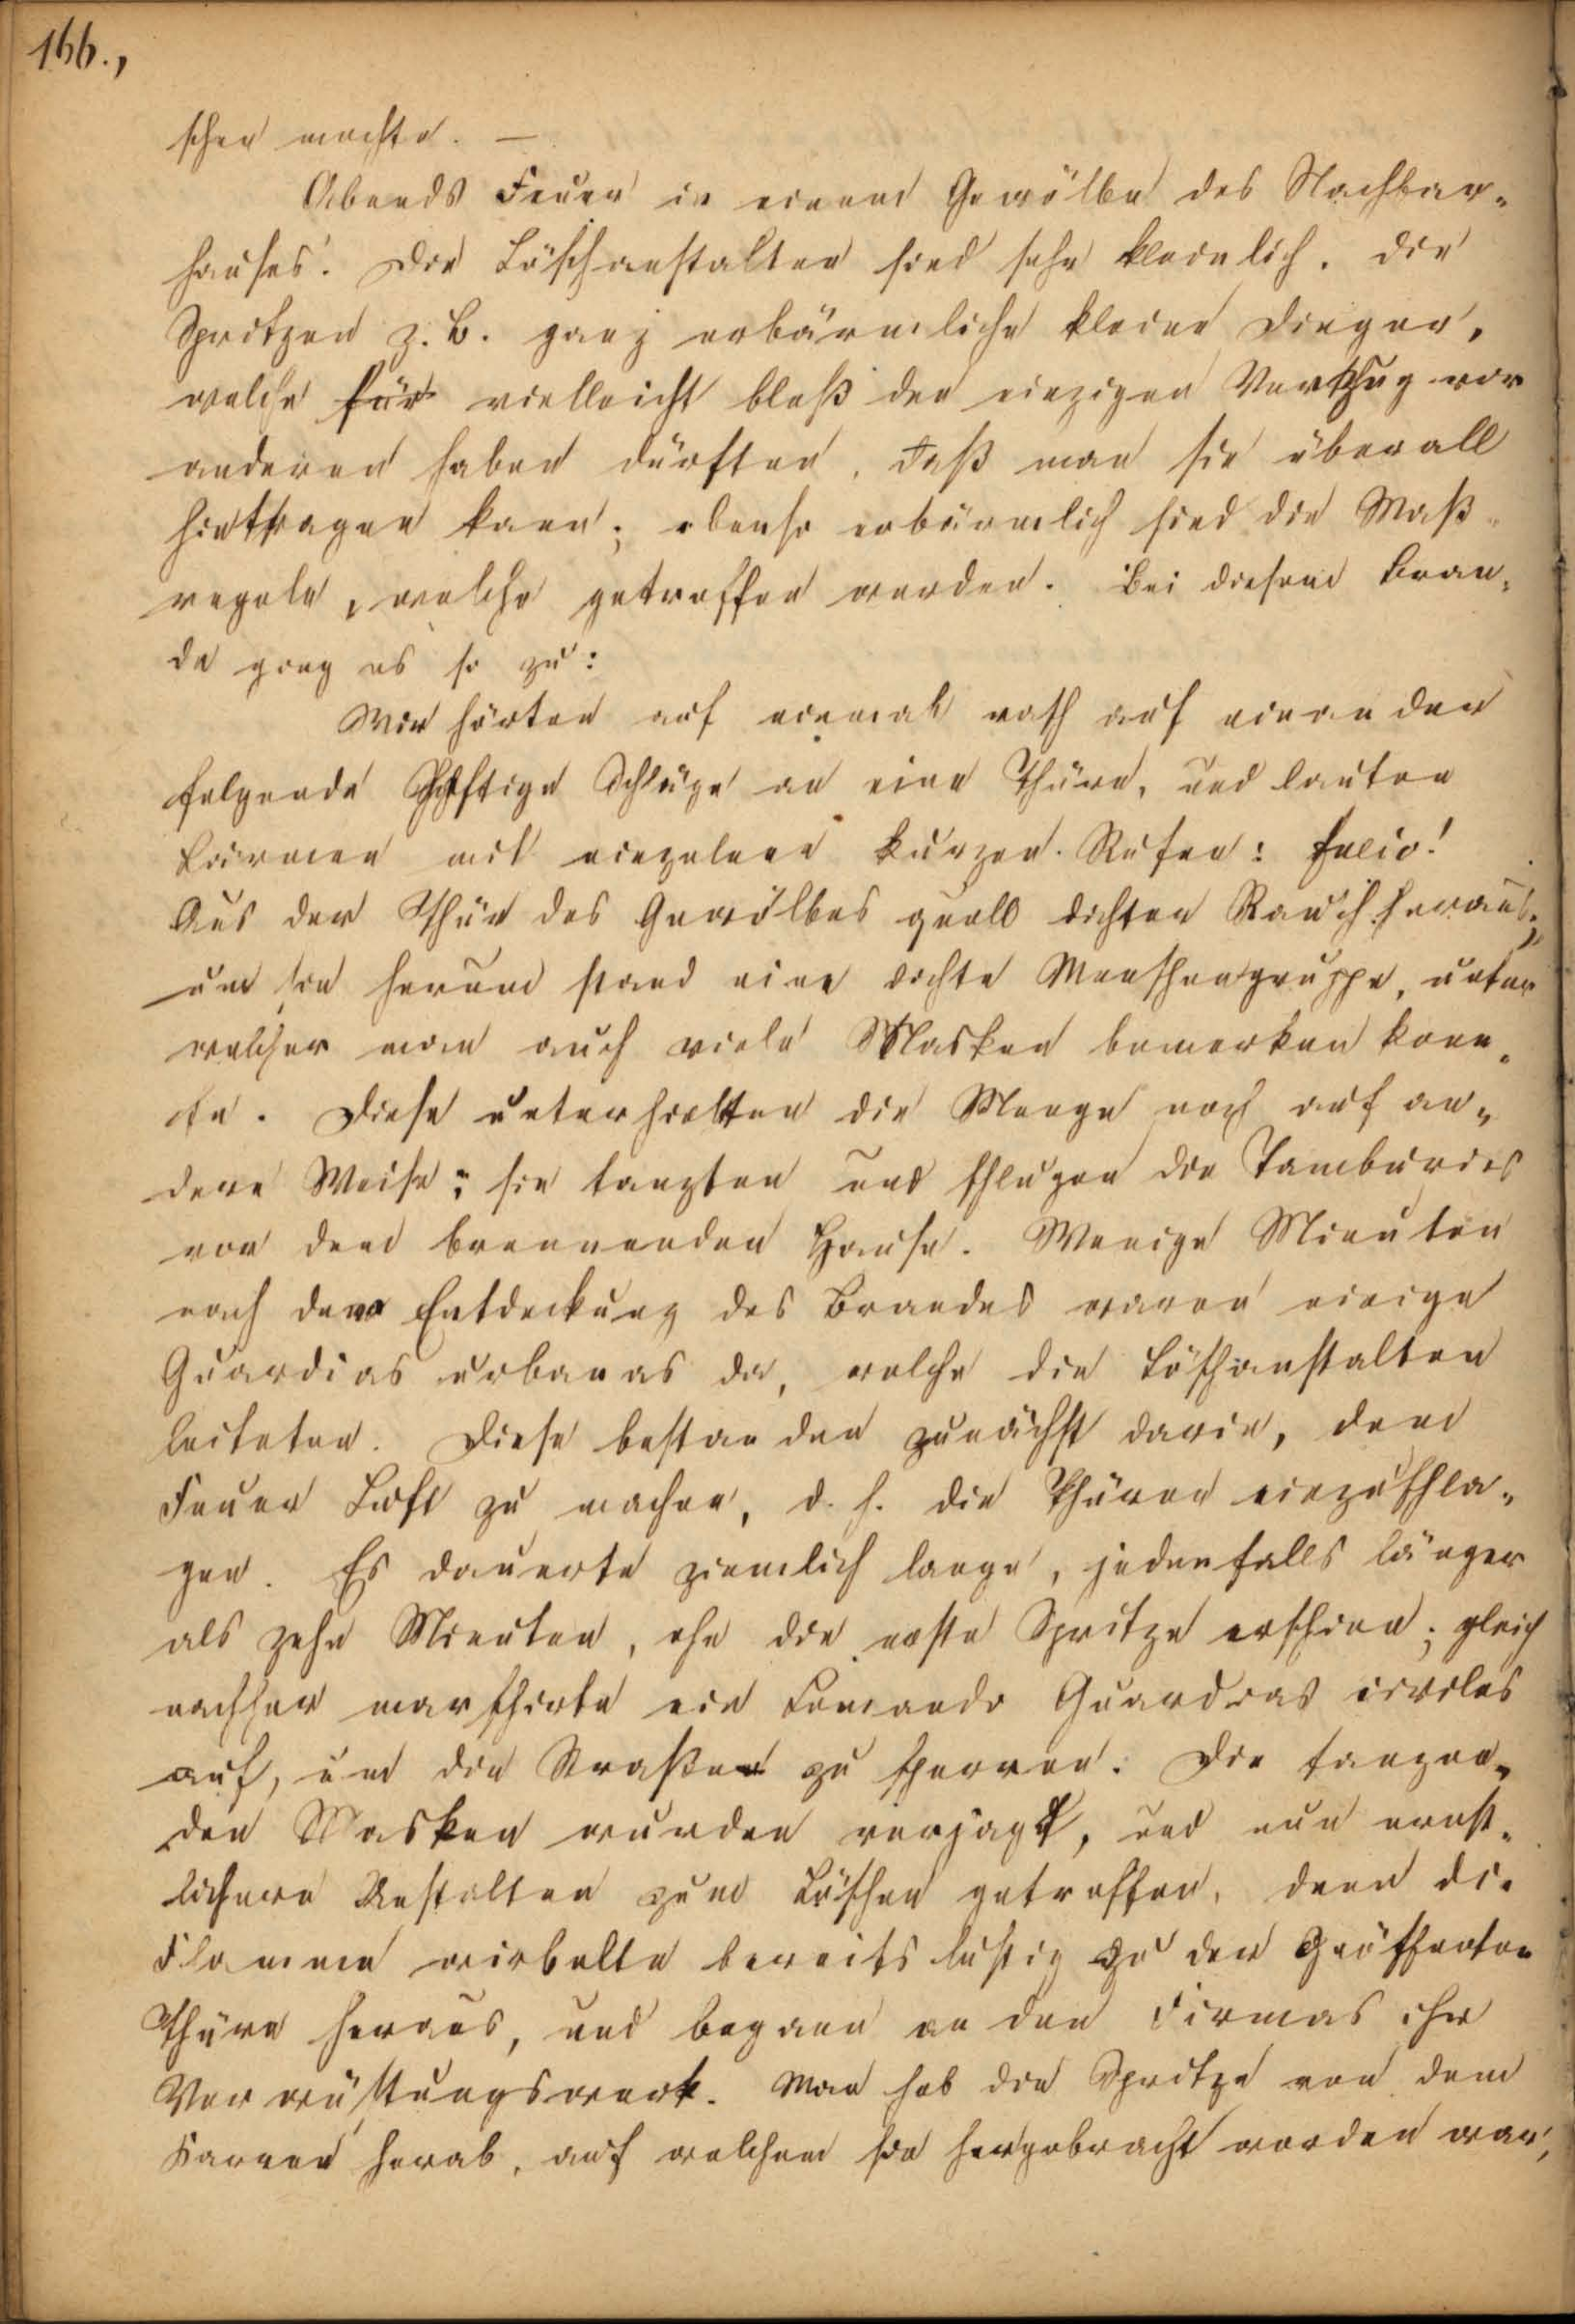 166.,
schen machte. —
Abends Feuer in einem Gewölbe des Nachbar-
hauses. Die Löschanstalten sind sehr kleinlich. Die
Spritzen z. B. ganz erbärmliche kleine Dinger,
welche für vielleicht bloß den einzigen Vorzug vor
anderen haben dürften, daß man sie überall
hintragen kann; ebenso erbärmlich sind die Maß-
regeln, welche getroffen werden. Bei diesem Bran-
de ging es so zu:
Wir hörten auf einmal rasch auf einander
folgende heftige Schläge an eine Thüre, und lauten
Lärmen mit einzelnen kurzen Rufen:
Aus der Thür des Gewölbes quoll dichter Rauch heraus;
um sie herum stand eine dichte Menschengruppe, unter
welcher man auch viele Masken bemerken konn-
te. Diese unterhielten die Menge noch auf an-
dere Weise; sie tanzten und schlugen die Tamburins
vor dem brennenden Hause. Wenige Minuten
nach der Entdeckung des Brandes waren einige
Guardias urbanas da, welche die Löschanstalten
leiteten. Diese bestanden zunächst darin, dem
Feuer Luft zu machen, d. h. die Thüren einzuschla-
gen. Es dauerte ziemlich lange, jedenfalls länger
als zehn Minuten, ehe die erste Spritze erschien; gleich
nachher marschirte ein Comando Guardias civiles
auf, um die Straßen zu sperren. Die tanzen-
den Masken wurden verjagt, und nun ernst-
lichere Anstalten zum Löschen getroffen, denn die
Flamme wirbelte bereits lustig zu der geöffneten
Thüre heraus, und begann an den Firmas ihr
Verwüstungswerk. Man hob die Spritze von dem
Karren herab, auf welchem sie hergebracht worden war,